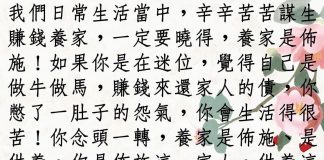 我們日常生活當中，辛辛苦苦謀生
賺錢養家，一定要曉得，養家是佈
施！如果你是在迷位，覺得自己是
做牛做馬，賺錢來還家人的債，你
憋了一肚子的怨氣，你會生活得很
苦！你念頭一轉，養家是佈施，是